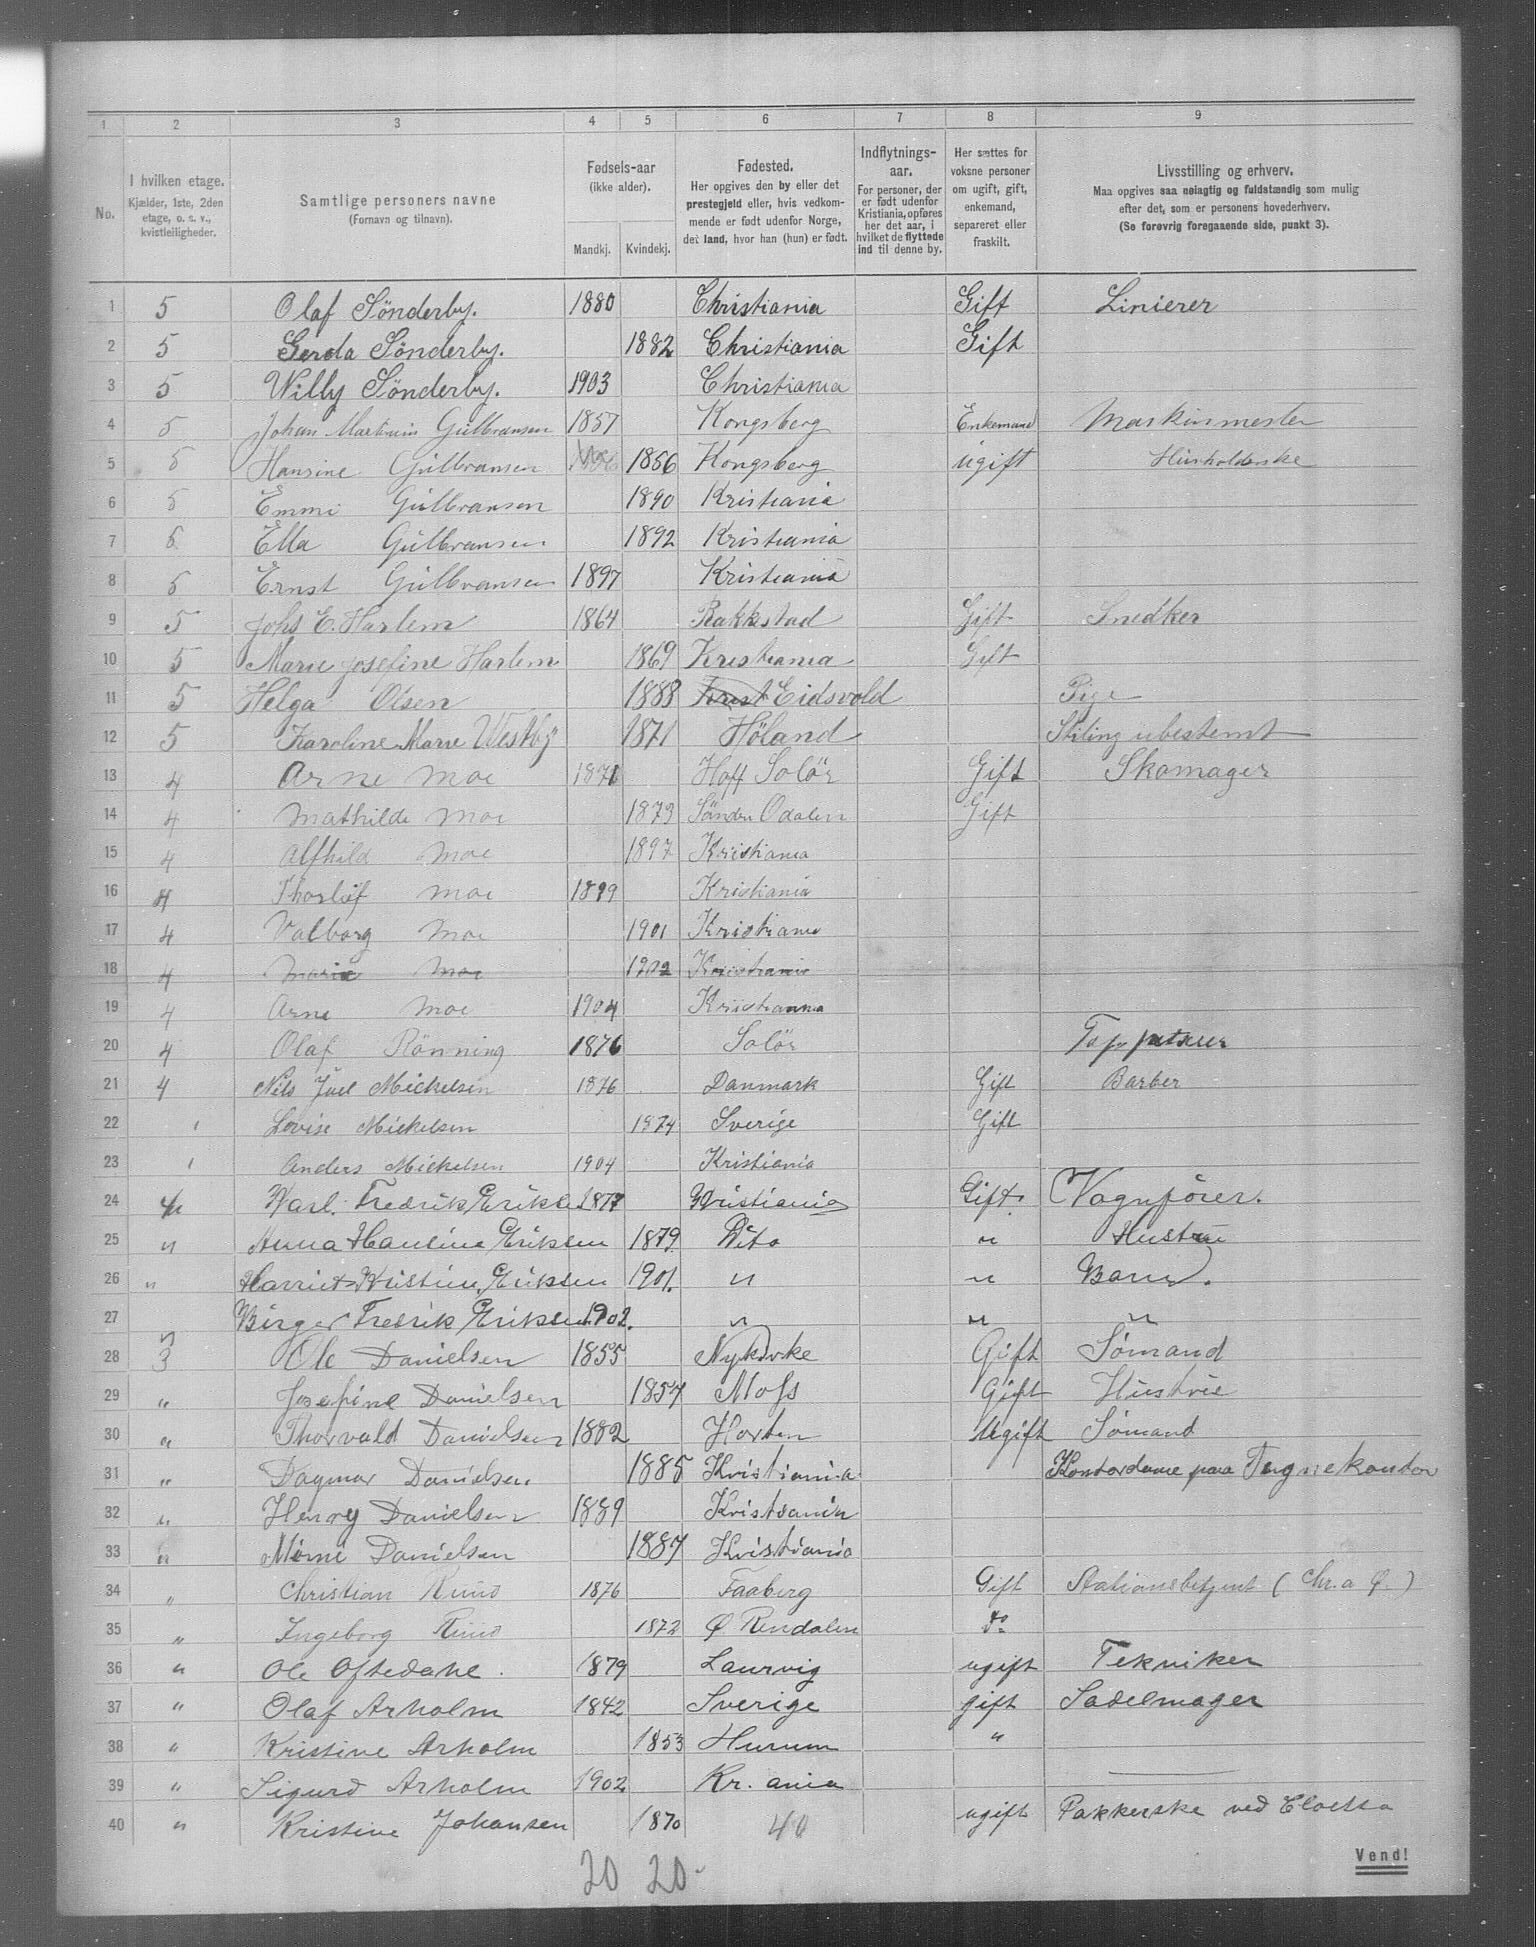 1 2 3 4 5 6 7 8 9
No. I hvilken etage. Kjælder, 1ste, 2den etage, o. s. v., kvistleiligheder. Samtlige personers navne (Fornavn og tilnavn). Fødsels-aar (ikke alder). Mandkj. Kvindekj. Fødested. Her opgives den by eller det prestegjeld eller, hvis vedkommende er født udenfor Norge, det land, hvor han (hun) er født. Indflytnings-aar. For personer, der er født udenfor Kristiania, opføres her det aar, i hvilket de flyttede ind til denne by. Her sættes for voksne personer om ugift, gift, enkemand, separeret eller fraskilt. Livsstilling og erhverv. Maa opgives saa nøiagtig og fuldstændig som mulig efter det, som er personens hovederhverv. (Se forøvrig foregaaende side, punkt 3).
1 5 Olaf Sönderby. 1880 Christiania Gift Linierer
2 5 Gerda Sönderby. 1882 Christiania Gift
3 5 Willy Sönderby. 1903 Christiania
4 5 Johan Martinius Gulbransen 1857 Kongsberg Enkemand Maskinmester
5 5 Hansine Gulbransen 1856 Kongsberg ugift Husholderske
6 5 Emmi Gulbransen 1890 Kristiania
7 5 Ella Gulbransen 1892 Kristiania
8 5 Ernst Gulbransen 1897 Kristiania
9 5 Johs E. Harlem 1864 Rakkestad Gift Snedker
10 5 Marie Josefine Harlem 1869 Kristiania Gift
11 5 Helga Olsen 1888 Krist Eidsvold Pige
12 5 Karoline Marie Westby 1871 Höland Stiling ubestemt
13 4 Arne Moe 1871 Hoff Solör Gift Skomager
14 4 Mathilde Moe 1873 Söndre Odalen Gift
15 4 Alfhild Moe 1897 Kristiania
16 4 Thorleif Moe 1899 Kristiania
17 4 Valborg Moe 1901 Kristiania
18 4 Marie Moe 1902 Kristiania
19 4 Arne Moe 1904 Kristiania
20 4 Olaf Rönning 1876 Solör
21 4 Nils Juel Mickelsen 1876 Danmark Gift Barber
22 " Lovise Mickelsen 1874 Sverige Gift
23 " Anders Mickelsen 1904 Kristiania
24 4 Karl. Fredrik Eriksen 1877 Kristiania Gift. Vognfører.
25 " Anna Hansine Eriksen 1879. Dito " Hustru
26 " Harriet Kristine Eriksen 1901. " " Barn.
27 " Birger Fredrik Eriksen 1902. " " "
28 3 Ole Danielsen 1855 Nykirke Gift Sømand
29 " Josefine Danielsen 1857 Moss Gift Hustrue
30 " Thorvald Danielsen 1882 Horten Ugift Sømand
31 " Dagmar Danielsen 1885 Kristiania Kontordame paa Tegnekontor
32 " Henry Danielsen 1889 Kristiania
33 " Mimi Danielsen 1887 Kristiania
34 " Christian Ruud 1876 Faaberg Gift Stationsbetjent (Chr.a Ø.)
35 " Ingeborg Ruud 1872 Ø Rendalen do
36 " Ole Oftedahl. 1879 Laurvig ugift Tekniker
37 " Olaf Arholm 1842 Sverige gift Sadelmager
38 " Kristine Arholm 1853 Hurum "
39 " Sigurd Arholm 1902 Kr. ania
40 " Kristine Johansen 1870 40 ugift Pakkerske ved Cloetta
Vend!
20 20